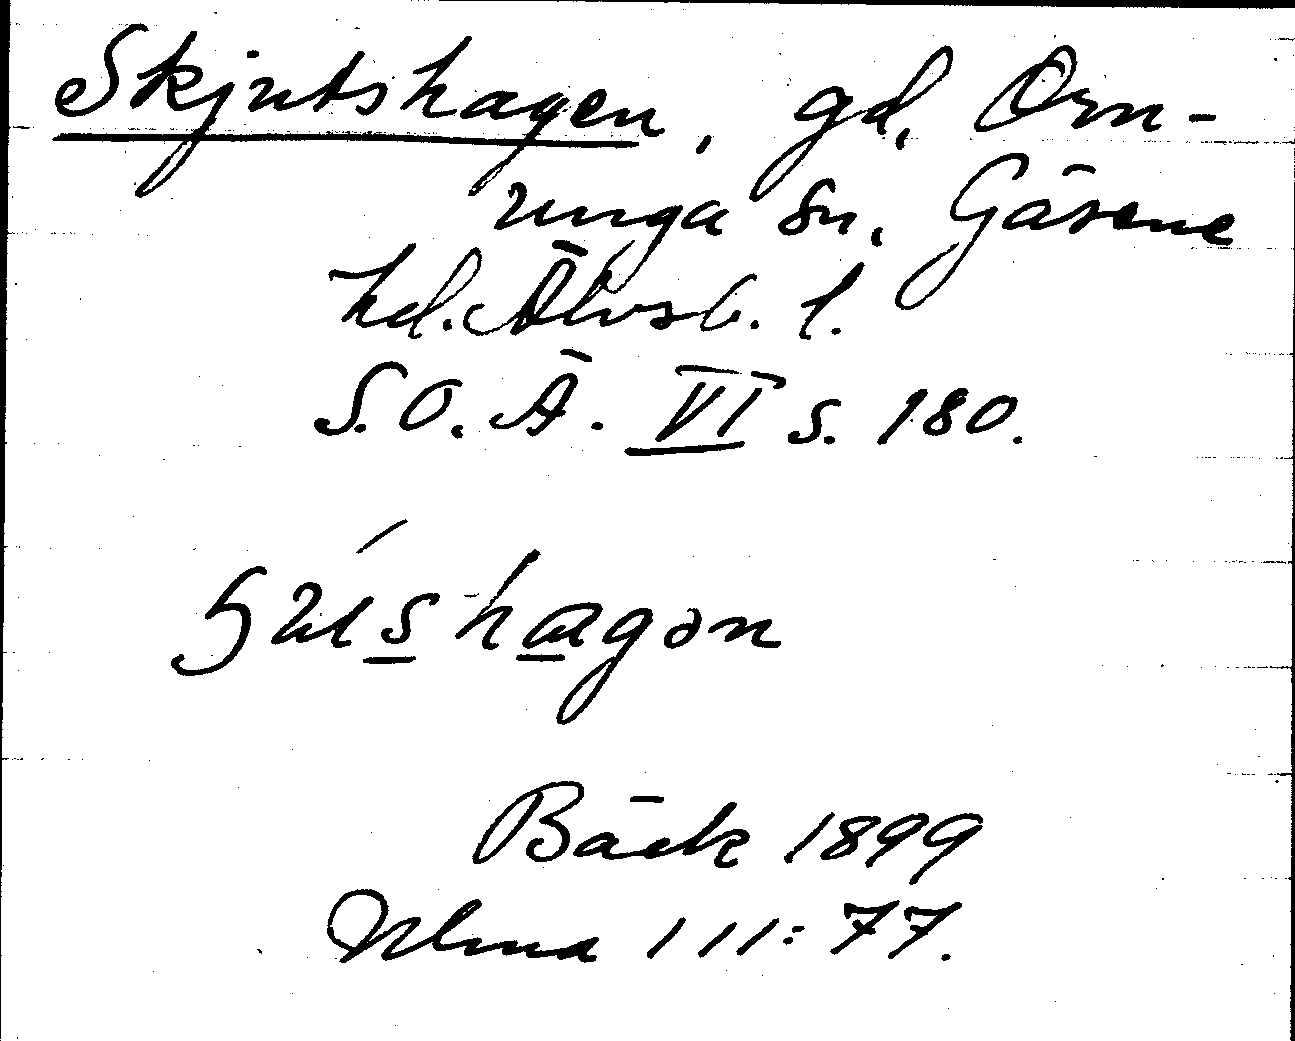 Skjutshagen, gd, Orn-
unga sn, Gäsene
hd. Älvsb. l.
S.O.Ä. VI s. 180.
Bäck 1899
Ulma 111:77.